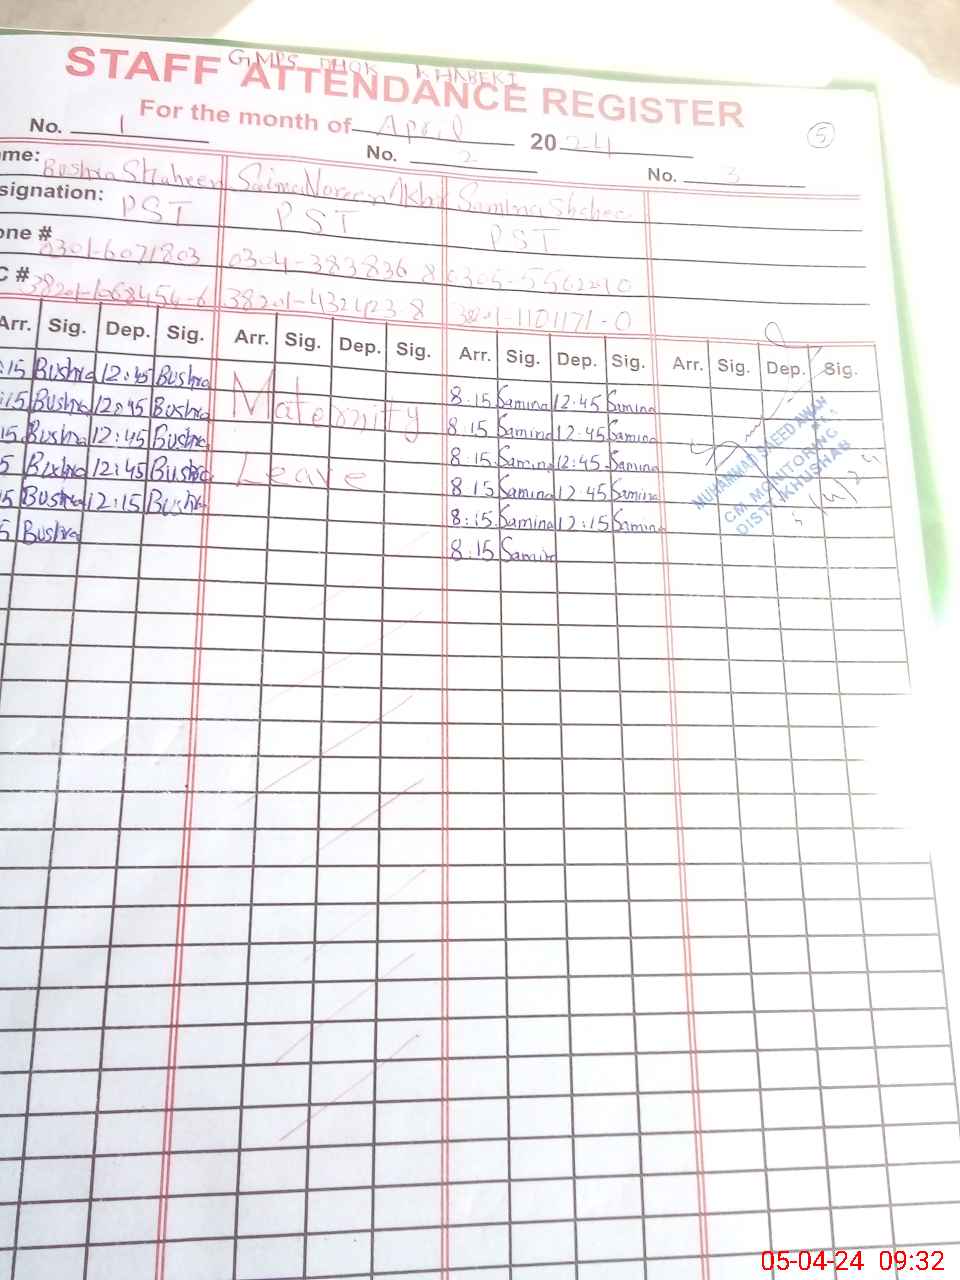 GMPS DHOK KHABEKI
STAFF ATTENDANCE REGISTER
For the month of April 2024
5
No. 1 No. 2 No. 3
ame: Bushra Shaheen Saima Noreen Akhtar Samina Shaheen
signation: PST PST PST
one # 0301-6071803 0304-3838368 0305-5562290
C # 38201-1068454-6 38201-4321123-8 38201-1101171-0
Arr. Sig. Dep. Sig. Arr. Sig. Dep. Sig. Arr. Sig. Dep. Sig. Arr. Sig. Dep. Sig.
:15 Bushra 12:45 Bushra 8.15 Samina 12:45 Samina
:15 Bushra 12:45 Bushra Maternity 8.15 Samina 12.45 Samina
15 Bushra 12:45 Bushra 8.15 Samina 12:45 Samina
5 Bushra 12:45 Bushra Leave 8.15 Samina 12.45 Samina
5 Bushra 12:15 Bushra 8:15 Samina 12:15 Samina
5 Bushra 8.15 Samina
MUHAMMAD SAEED AWAN
CM MONITORING
DISTT KHUSHAB
05-04-24 09:32